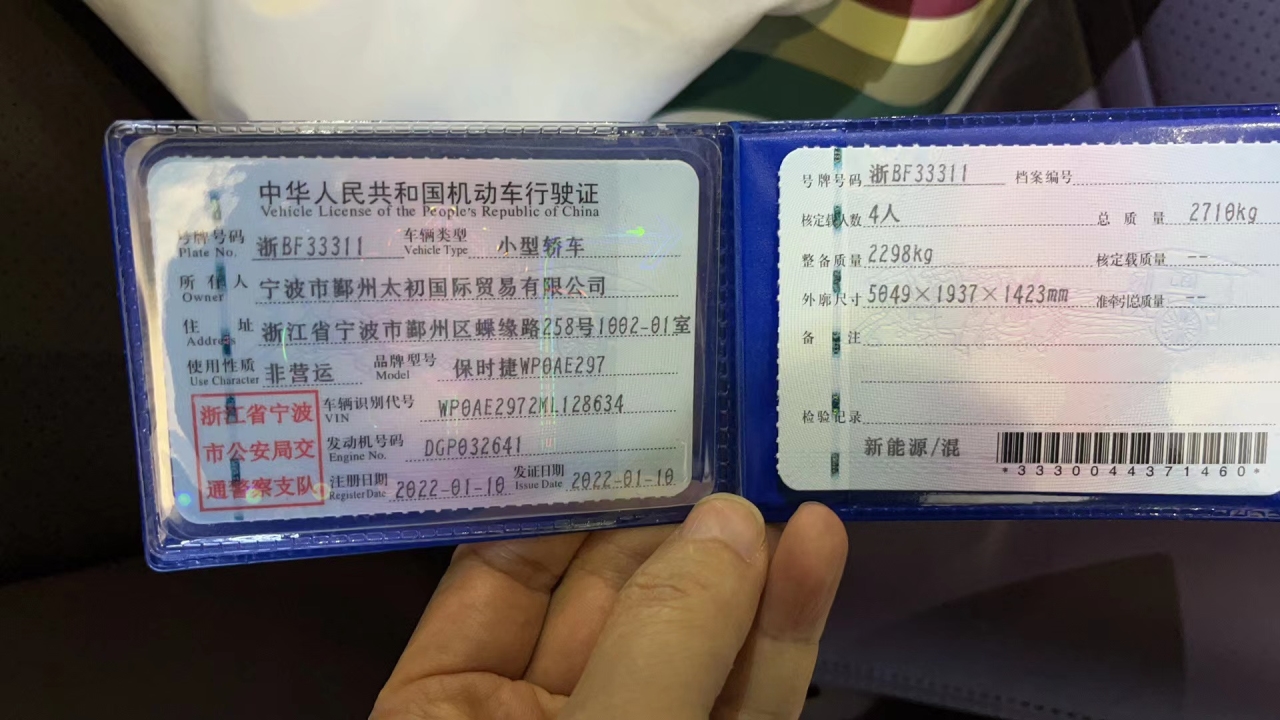 中华人民共和国机动车行驶证
Vehicle License of the People's Republic of China
号牌号码 Plate No. 浙BF33311 车辆类型 Vehicle Type 小型轿车
所有人 Owner 宁波市鄞州太初国际贸易有限公司
住址 Address 浙江省宁波市鄞州区蝶缘路258号1002-01室
使用性质 Use Character 非营运 品牌型号 Model 保时捷WP0AE297
浙江省宁波
市公安局交
通警察支队
车辆识别代号 VIN WP0AE2972ML128634
发动机号码 Engine No. DGP032641
注册日期 Register Date 2022-01-10 发证日期 Issue Date 2022-01-10
号牌号码 浙BF33311 档案编号
核定载人数 4人 总质量 2710kg
整备质量 2298kg 核定载质量 --
外廓尺寸 5049×1937×1423mm 准牵引总质量 --
备注
检验记录
新能源/混
*3330044371460*